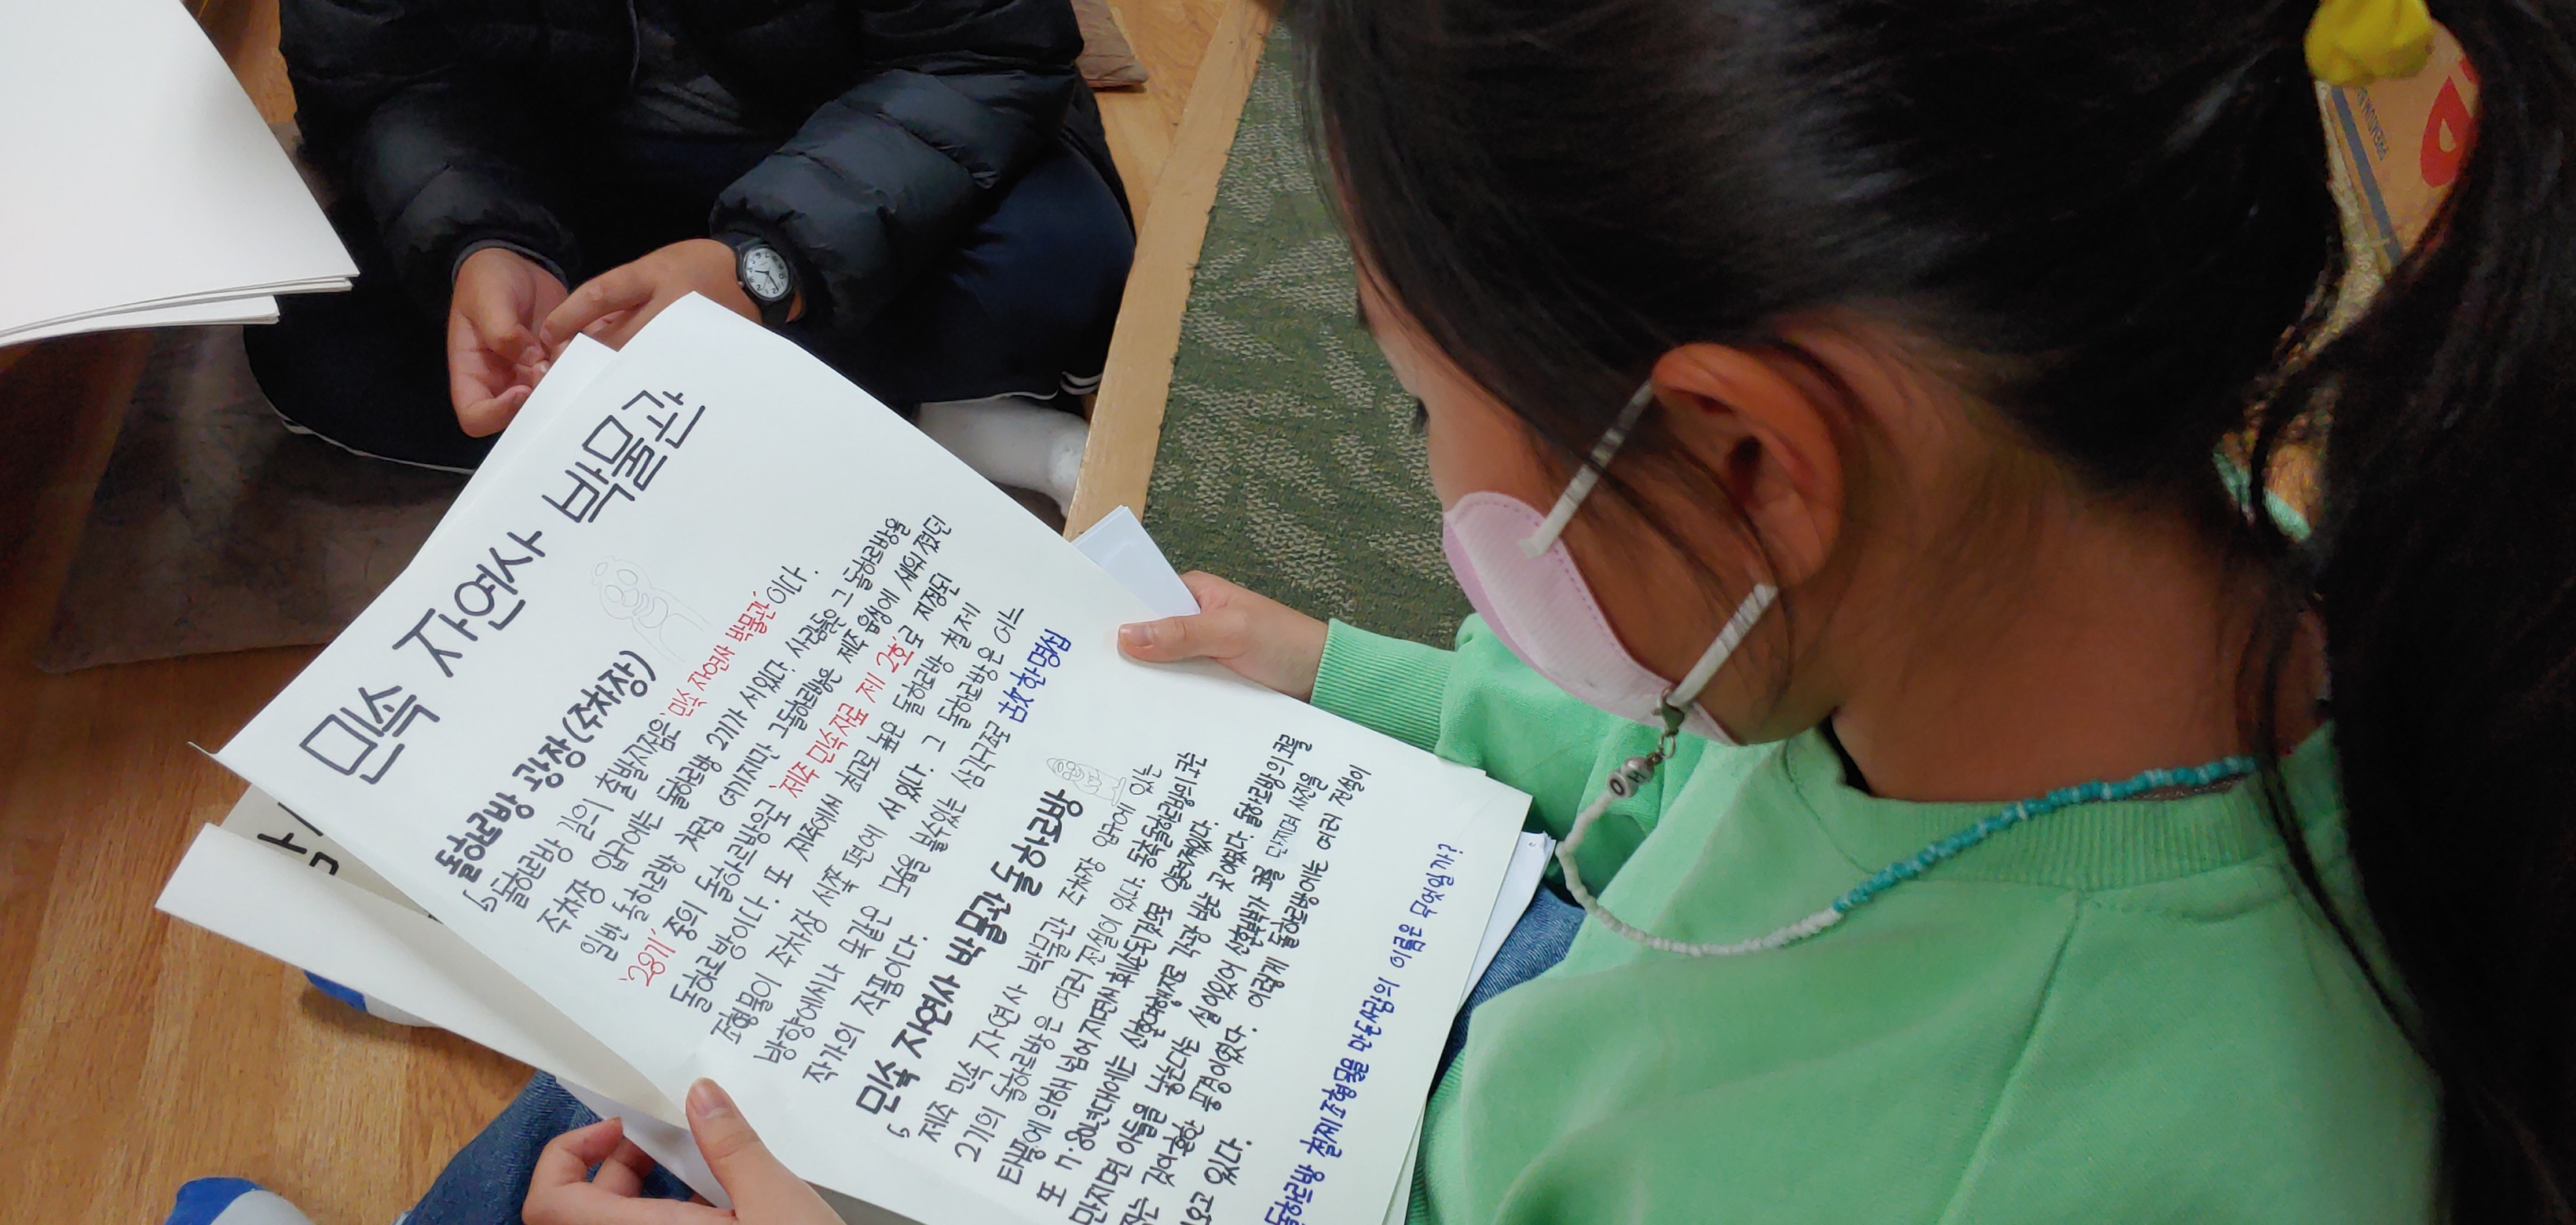 민속 자연사 박물관
돌할르방 광장(주차장)
돌하르방 길의 출발지점은 '민속 자연사 박물관' 이다.
주차장 입구에는 돌하르방 2기가 서있었다. 사람들은 그 돌하르방을
일반 돌하르방 처럼 여기지만 그돌하르방은 제주 읍성에 세워 졌던
'28기' 중의 돌하르방으로 '제주 민속자료 제 2호'로 지정된
돌하르방이다. 또 제주에서 최고로 높은 돌하르방 철제
조형물이 주차장 서쪽 편에 서 있었다. 그 돌하르방은 어느
방향에서나 똑같은 모습을 볼수있는 삼각구조로 설명한
작가의 작품이다.
민속 자연사 박물관 돌하르방
제주 민속 자연사 박물관 주차장 입구에 있는
2기의 돌하르방은 여러 전설이 있다. 동쪽돌하르방의 코는
태풍에의해 넘어지면서 훼손된것으로 알려져있다.
또 7.80년대에는 신혼여행지로 각광 받는 곳 이였다. 돌하르방의 코를
만지면 아들을 낳는다는 설이있어 신혼부부가 코를 만지며 사진을
찍는 것이 흔한 풍경이었다. 이렇게 돌하르방에는 여러 전설이
있다.
돌하르방 철제조형물을 만든사람의 이름은 무엇일까?
OH